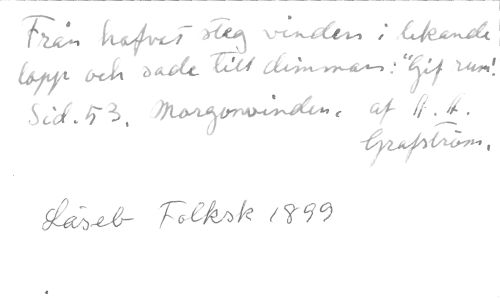 Från hafvet steg vinden i lekande
lopp och sade till dimman: "Gif rum!
Sid. 53. Morgonvinden. af A. A.
Grafström.
Läseb Folksk 1899